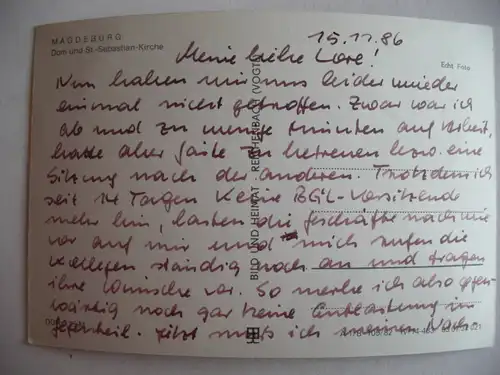 MAGDEBURG
Dom und St.-Sebastian-Kirche
Echt Foto
15.11.86
Meine liebe Lore!
Nun haben wir uns leider wieder
einmal nicht getroffen. Zwar war ich
ab und zu Minuten auf Arbeit,
hatte aber Gäste zu betreuen bzw. eine
Sitzung nach der anderen. Trotzdem ich
seit 14 Tagen keine BGL-Vorsitzende
mehr bin, lasten die Geschäfte nach wie
vor auf mir und mich rufen die
Kollegen ständig noch an und tragen
ihre Wünsche vor. So merke ich also gegen-
wärtig noch gar keine Entlastung im
Gegenteil. Jetzt muß ich meinen Nach-
BILD UND HEIMAT REICHENBACH (VOGTL)